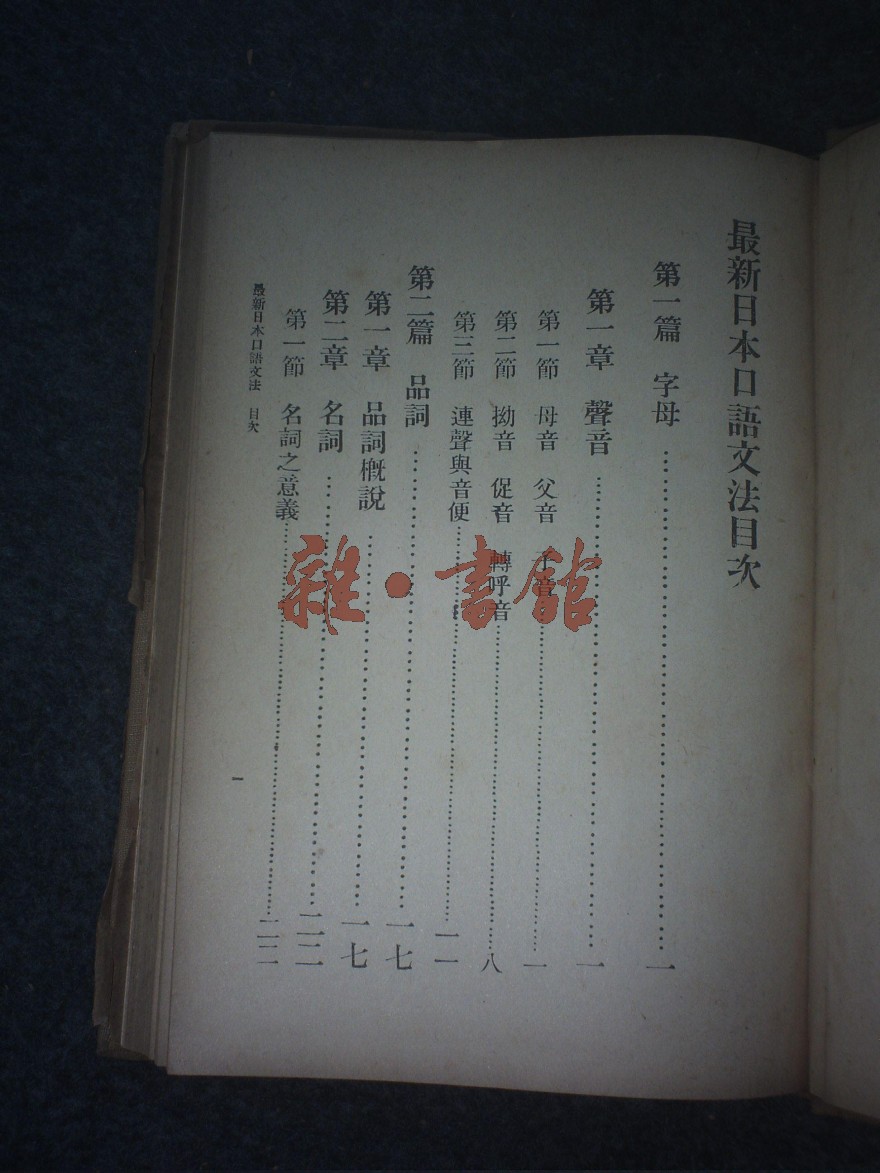 最新日本口語文法目次
第一篇 字母……一
第一章 聲音……一
第一節 母音 父音 子音……一
第二節 拗音 促音 轉呼音……八
第三節 連聲與音便……一一
第二篇 品詞……一七
第一章 品詞槪說……一七
第二章 名詞……二二
第一節 名詞之意義……二二
最新日本口語文法 目次
一
雜·書館